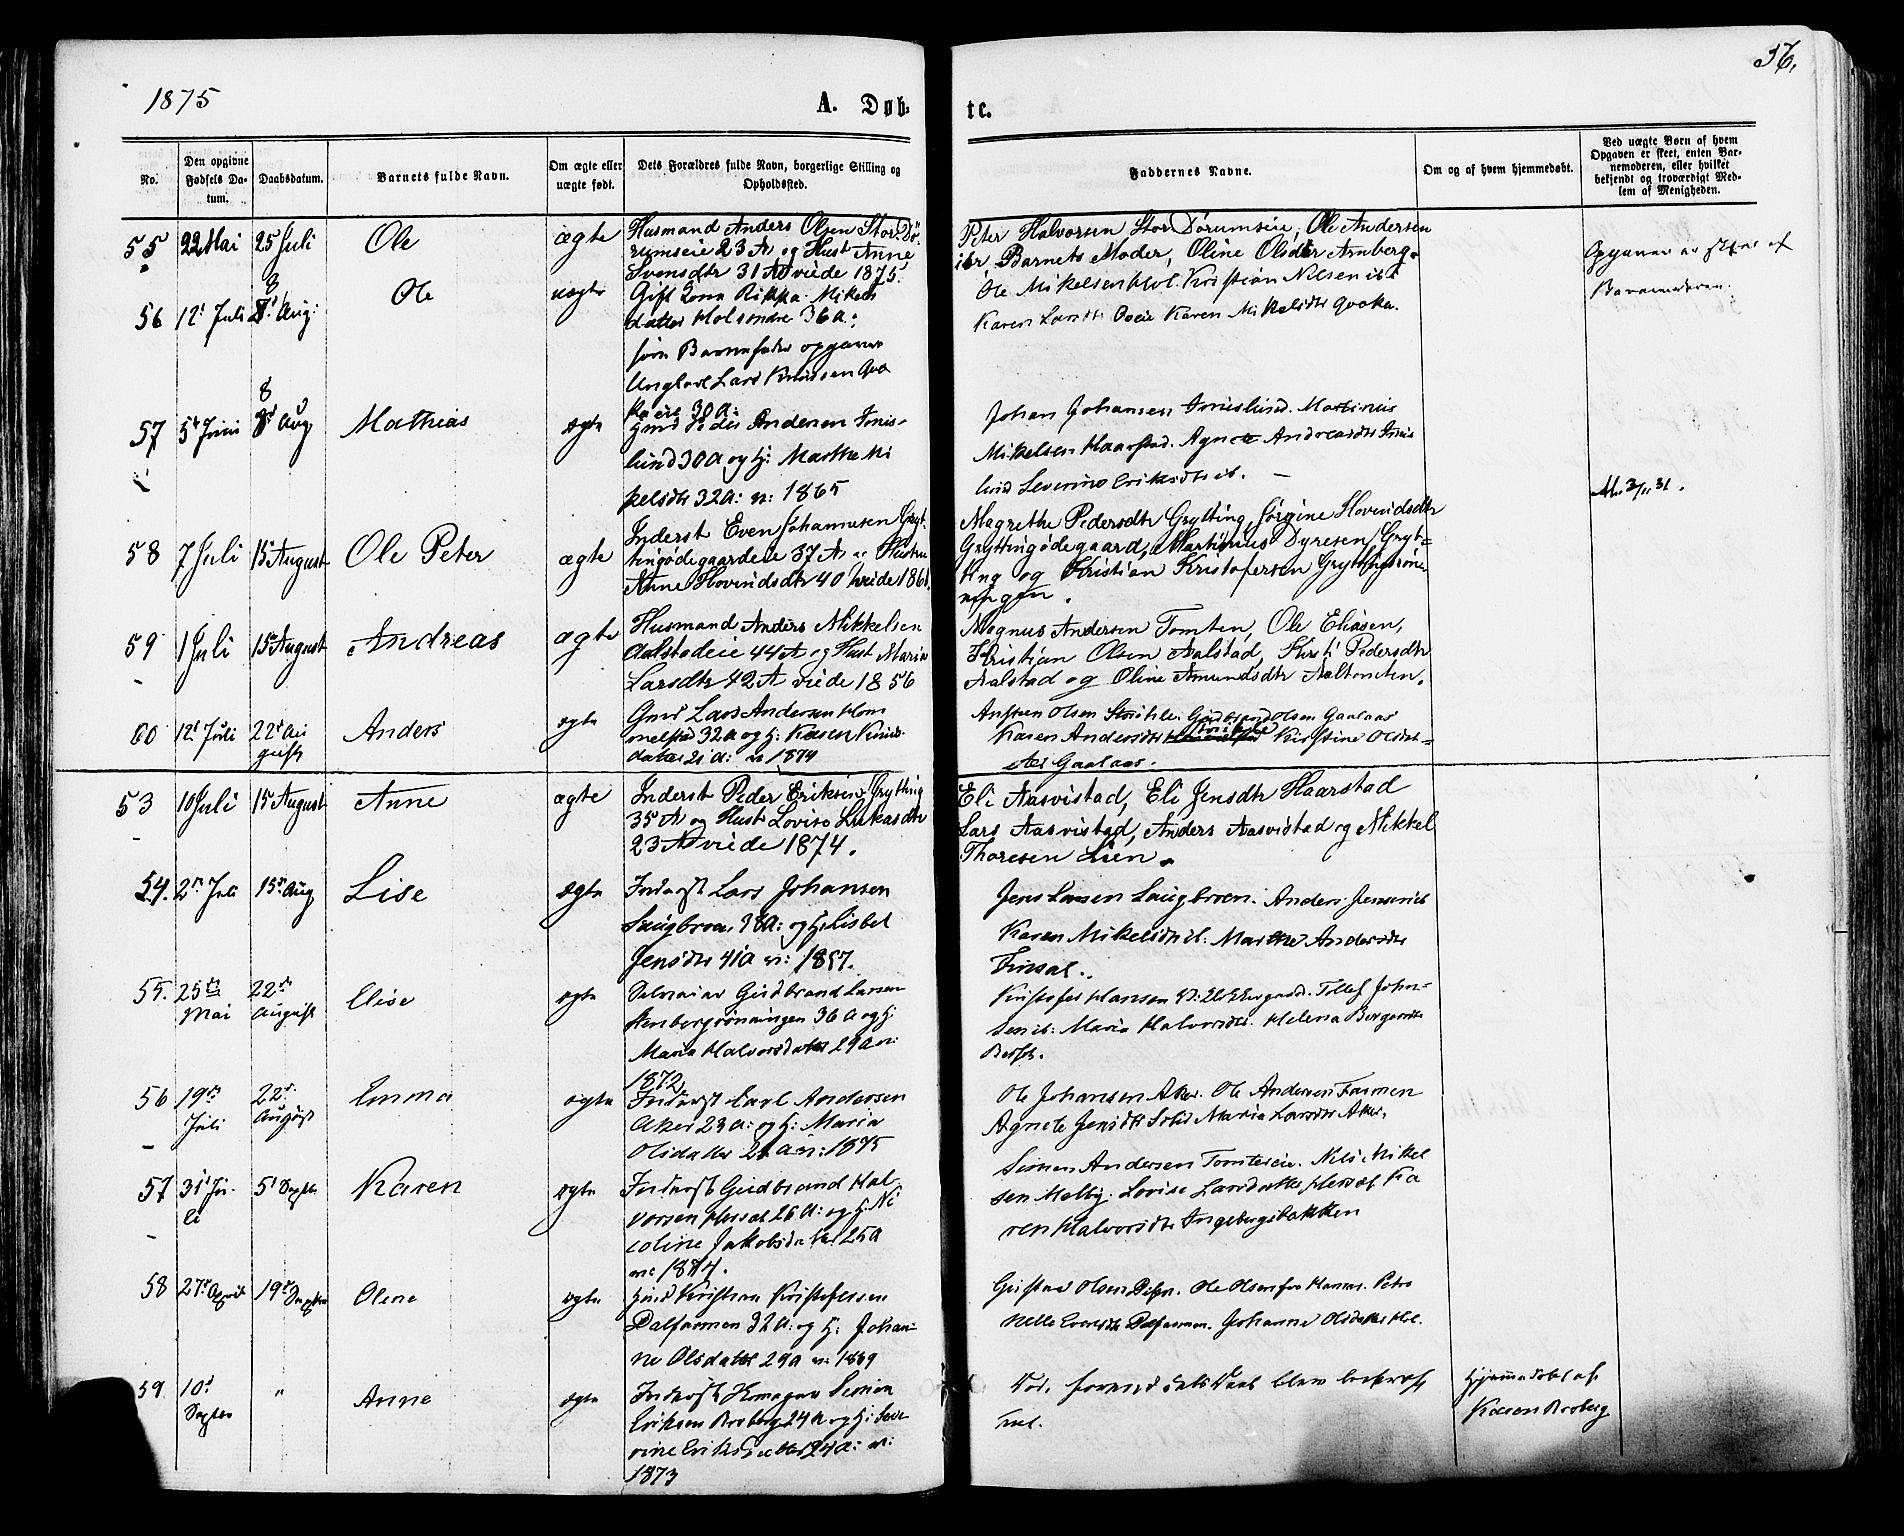 1875
A. Døb-
te.
36.
No.
Den opgivne
Fødsels Da-
tum.
Daabsdatum.
Barnets fulde Navn.
Om ægte eller
uægte født.
Dets Forældres fulde Navn, borgerlige Stilling og
Opholdssted.
Faddernes Navne.
Om og af hvem hjemmedøbt.
Ved uægte Børn af hvem
Opgaven er skeet, enten Bar-
nemoderen, eller hvilket
bekjendt og troværdigt Med-
lem af Menigheden.
55 22 Mai 25 Juli Ole ægte
Husmand Anders Olsen Stor Dö-
rumseie 23 A og Hust Anne
Svensdtr 31 A viede 1875.
Peter Halvorsen Stor Dörumseie, Ole Andersen
ibr Barnets Moder, Oline Olsdtr Arnberg.
56 12t Juli 8 Aug: Ole uægte
Gift Kone Mikels
datter Holsendre 36 a:
som Barnefader opgaves
Ungkarl Lars Knudsen
eie 30 a:
Ole Mikelsen Hol. Kristian Nilsen ib:
Karen Larsdtr Karen Mikelsdtr
Opgaven er skeet af
Barnemoderen.
57 5t Juni 8 Aug Mathias ægte
Gmd Peder Andersen Imis-
lund 30 A og H: Marthe Mi
kelsdtr 32 A: v: 1865
Johan Johansen Imislund. Martinus
Mikelsen Haarstad. Agnete Andreasdtr Imis
lund Severine Eriksdtr ib. —
58 7 Juli 15 August Ole Peter ægte
Inderst Even Johannesen Gryt
tingödegaardeie 37 A og Hustru
Anne Hovindsdtr 40 viede 1861.
Magrethe Pedersdtr Grytting, Jörgine Hovindsdtr
Gryttingödegaard, Martinus Dyresen Gryt-
ting og Kristian Kristofersen Gryttingröne
ningen.
59 1 Juli 15 August Andreas ægte
Husmand Anders Mikkelsen
Aalstadeie 44 A og Hust Maria
Larsdtr 42 A viede 1856
Magnus Andersen Tomten, Ole Eliasen,
Kristian Olsen Aalstad, Kirsti Pedersdtr
Aalstad og Oline Amundsdtr Aaltomten.
60 12t Juli 22d Au
gust Anders ægte
Gmd Lars Andersen Hom
melstad 32 a og H: Karen Knuds-
datter 21 a: v 1874
Olsen Gudbrand Olsen Gaalaas
Karen Andersdtr Kirstine Olsdat-
ter Gaalaas.
53 10 Juli 15 August Anne ægte
Inderst Peder Eriksen Grytting
35 A og Hust Lovise Lukasdtr
23 A viede 1874.
Eli Aasvistad, Eli Jensdtr Haarstad
Lars Aasvistad, Anders Aasvistad og Mikkel
Thoresen Lien.
54. 2den Juli 15de Aug Lise ægte
Inderst Lars Johansen
Laugbroen 38 A: og H: Lisbet
Jensdtr 41 a v: 1857.
Jens Larsen Laugbroen. Anders Jensen ib
Karen Mikelsdtr ib: Marthe Andersdtr
Finsal.
55. 25te
Mai 22den
August Elise ægte
Gudbrand Larsen
Stenbergrönningen 36 A og H:
Maria Halvorsdatter 29 a v:
1872
Kristofer Hansen Tollef John-
sen ib: Maria Halvorsdtr. Helena
56 19de
Juli 22d
August Emma ægte
Inderst Carl Andersen
Aker 23 a: og H: Maria
Olsdatter 21 a v: 1875
Ole Johansen Aker. Ole Andersen Farmen
Agnete Jensdtr Maria Larsdtr Aker.
57 31t Ju-
li 5t Septbr Karen ægte
Inderst Gudbrand Hal-
vorsen Hersal 26 A: og H: Ni
coline Jakobsdatter 25 a
v: 1874.
Simen Andersen Tomtereie. Nils Mikel
sen Melby. Lovise Larsdatter Hersal Ka
ren Halvorsdtr Ingebergsbakken
58 27de April 19de Septbr Oline ægte
Gmd Kristian Kristofersen
Dalfarmen 32 A: og H: Johan-
ne Olsdatter 29 a v: 1869
Gustav Olsen Ole Olsen
Evensdtr Dalfarmen. Johanne Olsdatter Hol.
59 10d
Septbr " Anne ægte
Inderst Simen
Eriksen Broberg 24 A og H: Seve
rine Eriksdatter 24 a: v:
1873
Död, forend Daab blev bekræf
tet.
Hjemmedöbt af
Karen Broberg